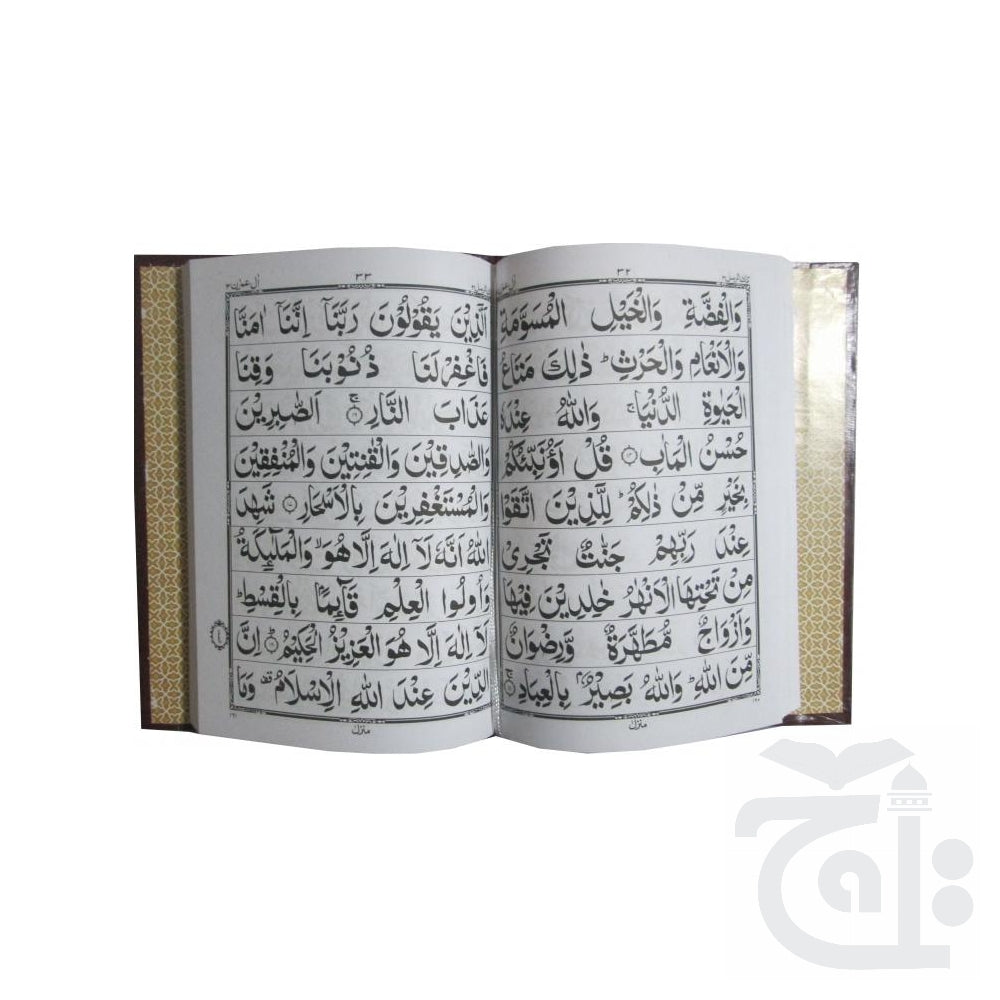 ٣٢
وَالْفِضَّةِ وَالْخَيْلِ الْمُسَوَّمَةِ
وَالْاَنْعَامِ وَالْحَرْثِ ؕ ذٰلِكَ مَتَاعُ
الْحَيٰوةِ الدُّنْيَا ۚ وَاللّٰهُ عِنْدَهٗ
حُسْنُ الْمَاٰبِ ۝۱۴ قُلْ اَؤُنَبِّئُكُمْ
بِخَيْرٍ مِّنْ ذٰلِكُمْ ؕ لِلَّذِيْنَ اتَّقَوْا
عِنْدَ رَبِّهِمْ جَنّٰتٌ تَجْرِيْ
مِنْ تَحْتِهَا الْاَنْهٰرُ خٰلِدِيْنَ فِيْهَا
وَاَزْوَاجٌ مُّطَهَّرَةٌ وَّرِضْوَانٌ
مِّنَ اللّٰهِ ؕ وَاللّٰهُ بَصِيْرٌۢ بِالْعِبَادِ ۝۱۵ۚ
منزل
٣٣
اٰل عمرٰن ٣
اَلَّذِيْنَ يَقُوْلُوْنَ رَبَّنَاۤ اِنَّنَاۤ اٰمَنَّا
فَاغْفِرْ لَنَا ذُنُوْبَنَا وَقِنَا
عَذَابَ النَّارِ ۝۱۶ۚ اَلصّٰبِرِيْنَ
وَالصّٰدِقِيْنَ وَالْقٰنِتِيْنَ وَالْمُنْفِقِيْنَ
وَالْمُسْتَغْفِرِيْنَ بِالْاَسْحَارِ ۝۱۷ شَهِدَ
اللّٰهُ اَنَّهٗ لَاۤ اِلٰهَ اِلَّا هُوَ ۙ وَالْمَلٰٓئِكَةُ
وَاُولُوا الْعِلْمِ قَآئِمًاۢ بِالْقِسْطِ ؕ
لَاۤ اِلٰهَ اِلَّا هُوَ الْعَزِيْزُ الْحَكِيْمُ ۝۱۸ؕ اِنَّ
الدِّيْنَ عِنْدَ اللّٰهِ الْاِسْلَامُ ۟ وَمَا
منزل